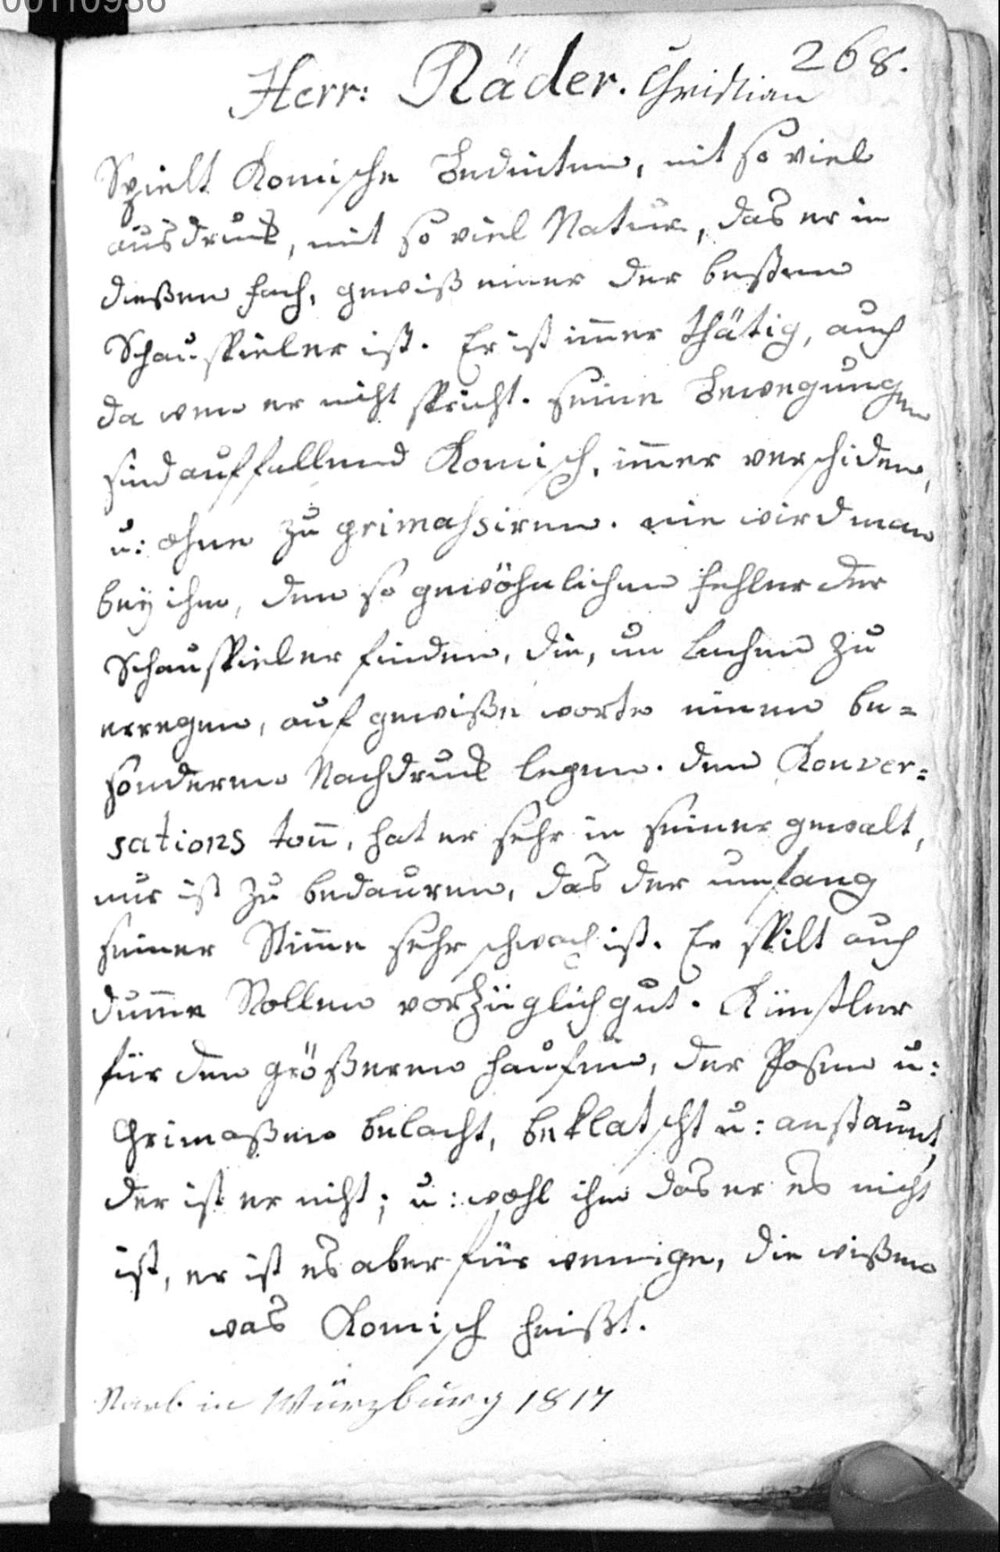 00110936
268.
Herr: Räder. Christian
Spielt Komische Bedinten, mit so viel
ausdruck, mit so viel Natur, das er in
dießen fach, gewiß einer der besten
Schauspieler ist. Er ist immer thätig, auch
da wen er nicht spricht. seine Bewegungen
sind auffallend Komisch, immer verschiden,
u: ohne zu grimassiren. nie wird man
bey ihm, den so gewöhnlichen fehler der
Schauspieler finden, die, um Lachen zu
erregen, auf gewiße worte einen be=
sonderen Nachdruck legen. den Konver=
sations tonn, hat er sehr in seiner gewalt,
nur ist zu bedauren, das der umfang
seiner Stimme sehr schwach ist. Er spilt auch
dumme Rollen vorzüglich gut. Künstler
für den größeren haufen, der Possen u:
Grimaßen belacht, beklatscht u: anstaunt,
der ist er nicht; u: wohl ihm das er es nicht
ist, er ist es aber für wenige, die wißen
was Komisch heißt.
Starb in Würzburg 1817